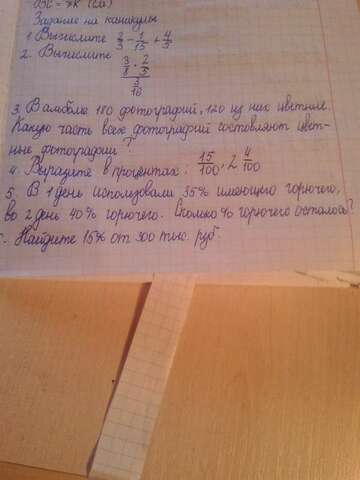 Задание на каникулы
1. Вычислите 2/3 - 1/15 + 4/5
2. Вычислите
3/8 · 2/5
3/10
3. В альбоме 180 фотографий, 120 из них цветные.
Какую часть всех фотографий составляют цвет-
ные фотографии?
4. Выразите в процентах: 15/100, 2 4/100
5. В 1 день использовали 35% имеющего горючего,
во 2 день 40% горючего. Сколько % горючего осталось?
Найдите 15% от 300 тыс. руб.